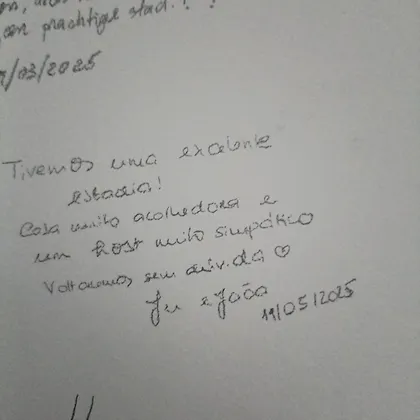 een prachtige stad.!
/03/2025
Tivemos uma excelente
estadia!
Casa muito acolhedora e
um host muito simpático
Voltaremos sem dúvida ♡
Ju e João
19/05/2025